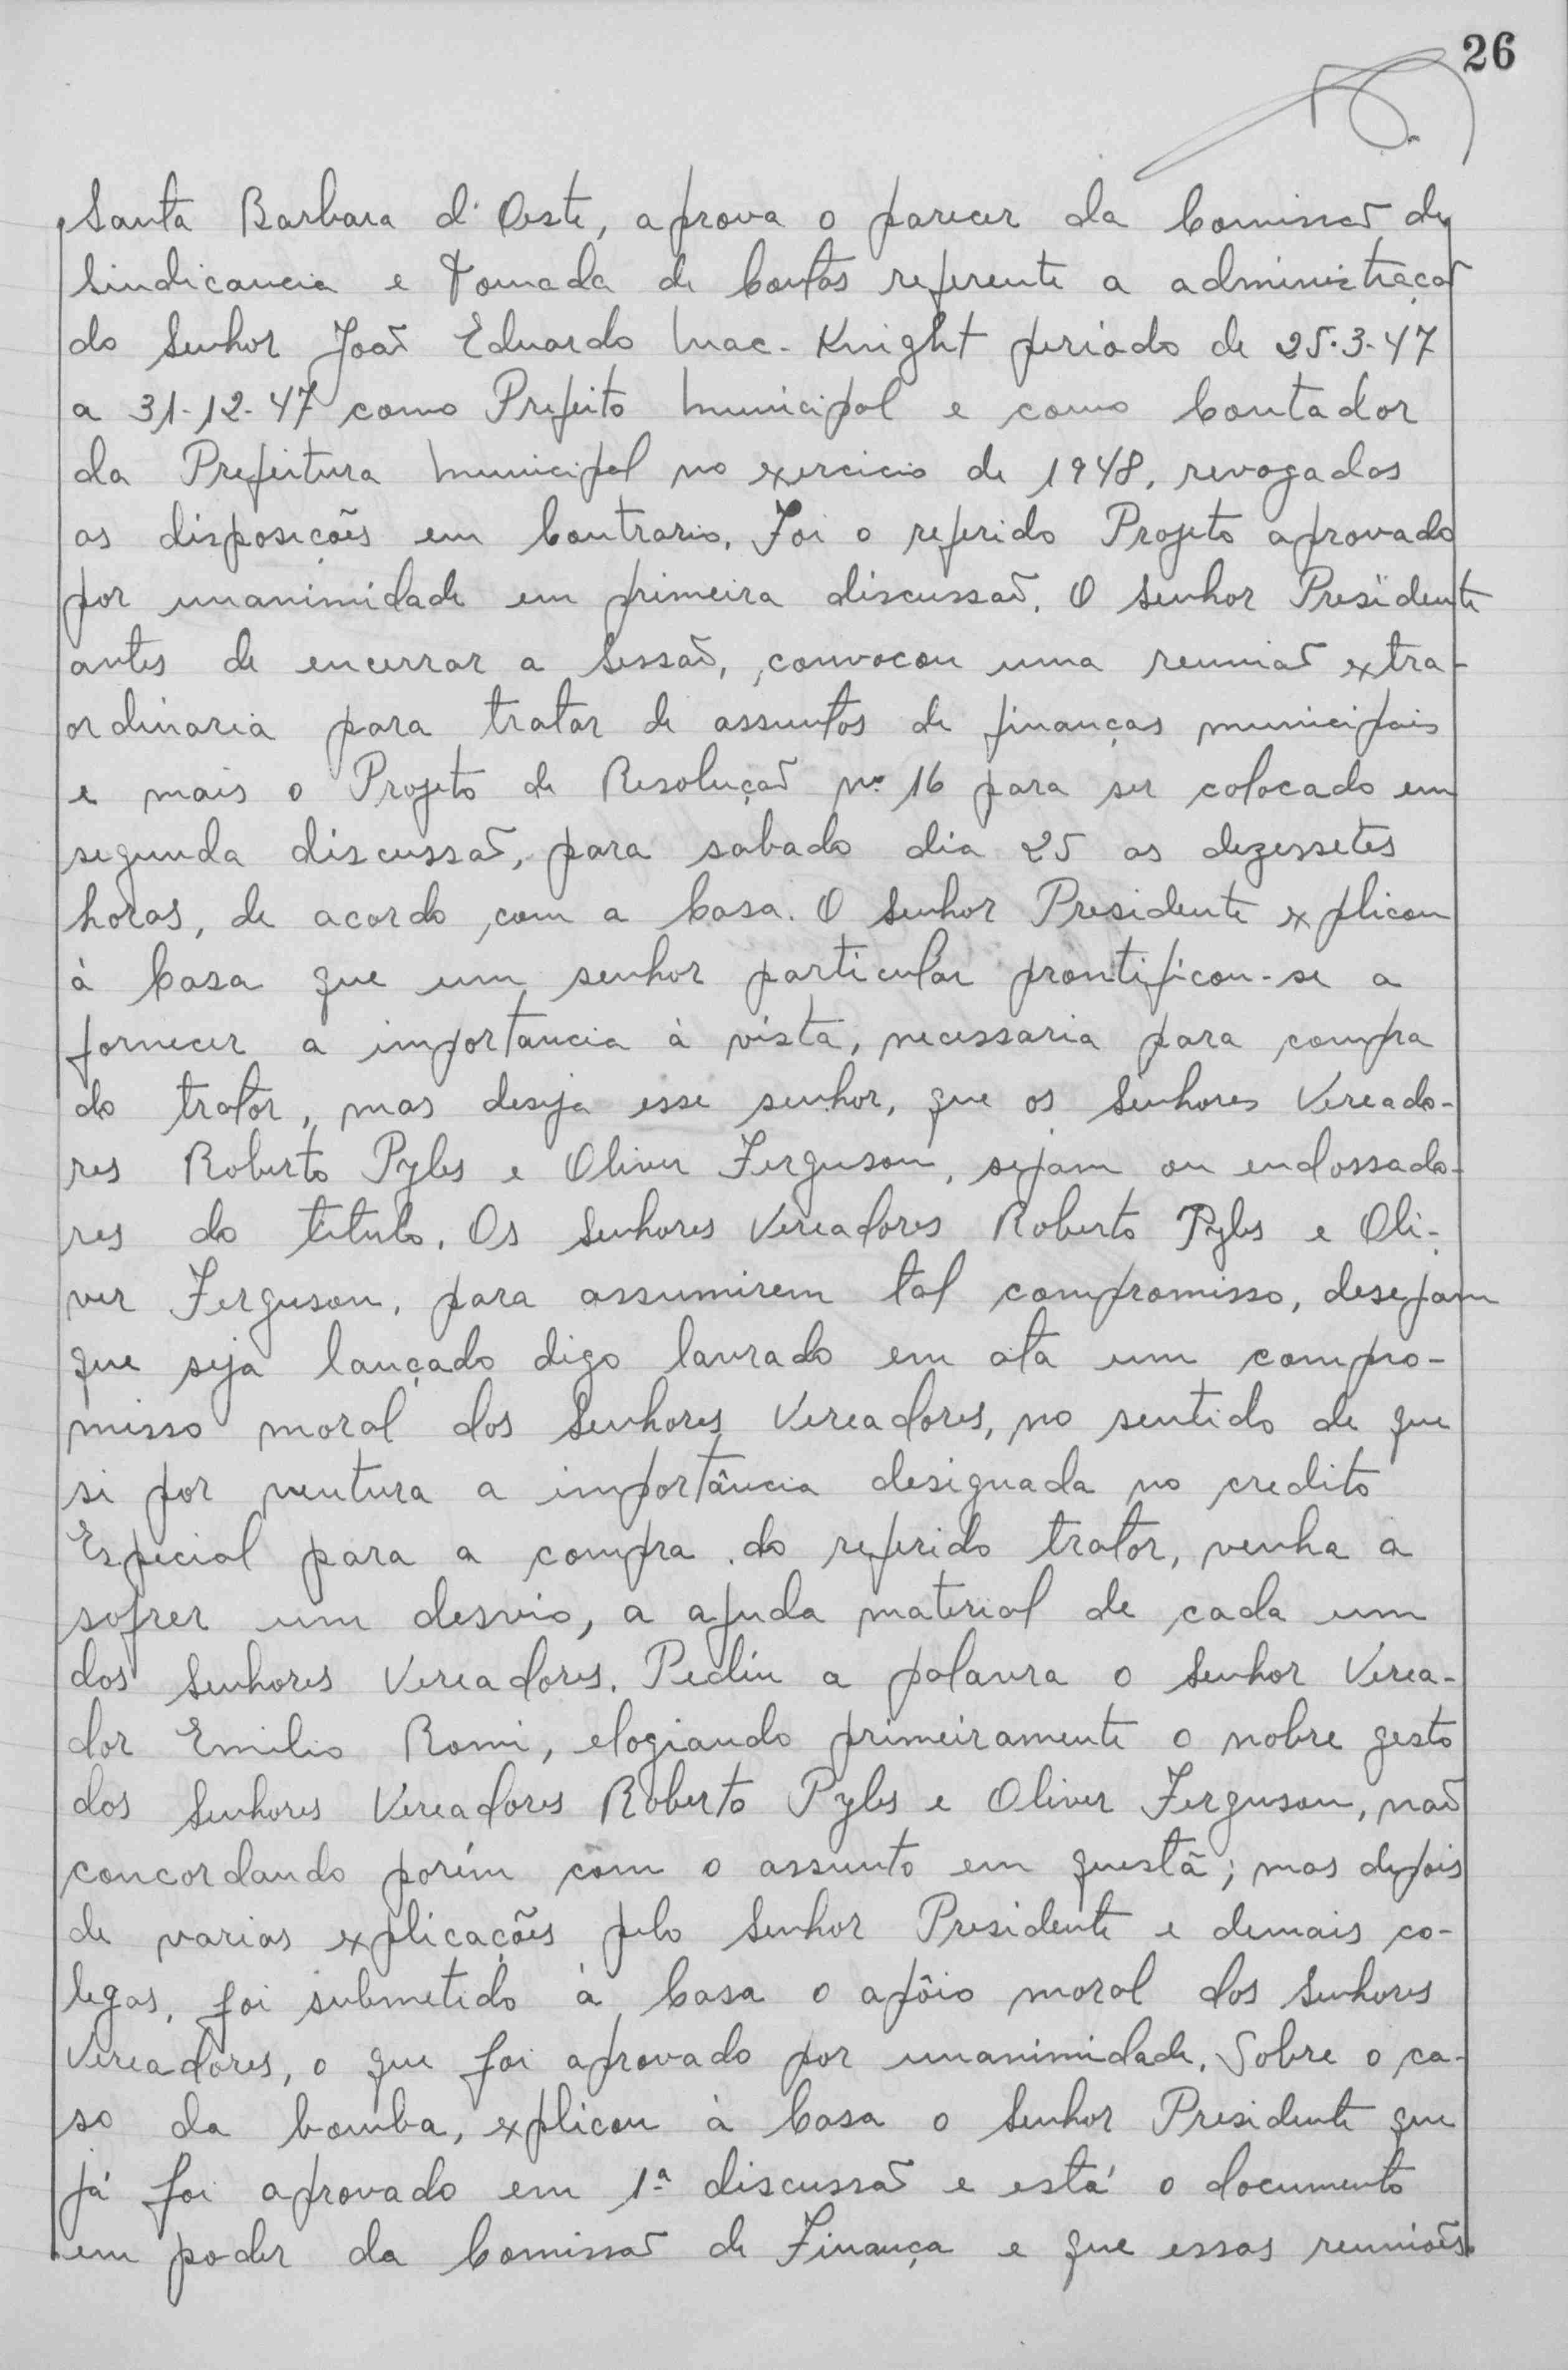 26
Santa Barbara d'Oeste, aprova o parecer da Comissão de
Sindicancia e Tomada de Contas referente a administração
do Senhor João Eduardo Mac-Knight periodo de 25-3-47
a 31-12-47 como Prefeito Municipal e como Contador
da Prefeitura Municipal no exercicio de 1948, revogadas
as disposições em Contrario. Foi o referido Projeto aprovado
por unanimidade em primeira discussão. O Senhor Presidente
antes de encerrar a Sessão, convocou uma reunião extra-
ordinaria para tratar de assuntos de finanças municipais
e mais o Projeto de Resolução nº 16 para ser colocado em
segunda discussão, para sabado dia 25 as dezessetes
horas, de acordo com a Casa. O Senhor Presidente explicou
à Casa que um senhor particular prontificou-se a
fornecer a importancia à vista, necessaria para compra
do trator, mas deseja esse senhor, que os Senhores Vereado-
res Roberto Pyles e Oliver Ferguson, sejam ou endossado-
res do titulo. Os Senhores Vereadores Roberto Pyles e Oli-
ver Ferguson, para assumirem tal compromisso, desejam
que seja lançado digo lavrado em ata um compro-
misso moral dos Senhores Vereadores, no sentido de que
si por ventura a importância designada no credito
Especial para a compra do referido trator, venha a
sofrer um desvio, a ajuda material de cada um
dos Senhores Vereadores. Pediu a palavra o Senhor Verea-
dor Emilio Romi, elogiando primeiramente o nobre gesto
dos Senhores Vereadores Roberto Pyles e Oliver Ferguson, não
concordando porém com o assunto em questã; mas depois
de varias explicações pelo Senhor Presidente e demais co-
legas, foi submetido à Casa o apôio moral dos Senhores
Vereadores, o que foi aprovado por unanimidade. Sobre o ca-
so da bomba, explicou à Casa o Senhor Presidente que
já foi aprovado em 1ª discussão e está o documento
em poder da Comissão de Finança e que essas reuniões